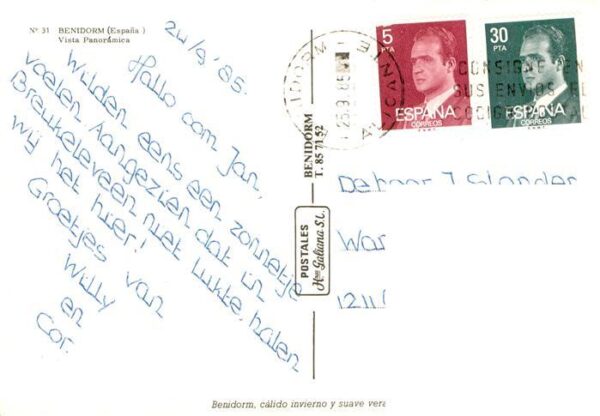 Nº 31 BENIDORM (España)
Vista Panorámica
24/9/'85.
Hallo oom Jan,
Wilden eens een zonnetje
voelen Aangezien dat in
Breukeleveen niet lukte, halen
wij het hier!
Groetjes van
Willy
en
Cor.
BENIDORM
T. 85 71 52
POSTALES
Hnos Galiana S.L.
5
PTA
ESPAÑA
CORREOS
30
PTA
ESPAÑA
CORREOS
CONSIGNE EN
SUS ENVIOS EL
CODIGO
De heer J. Slander
Benidorm, cálido invierno y suave vera